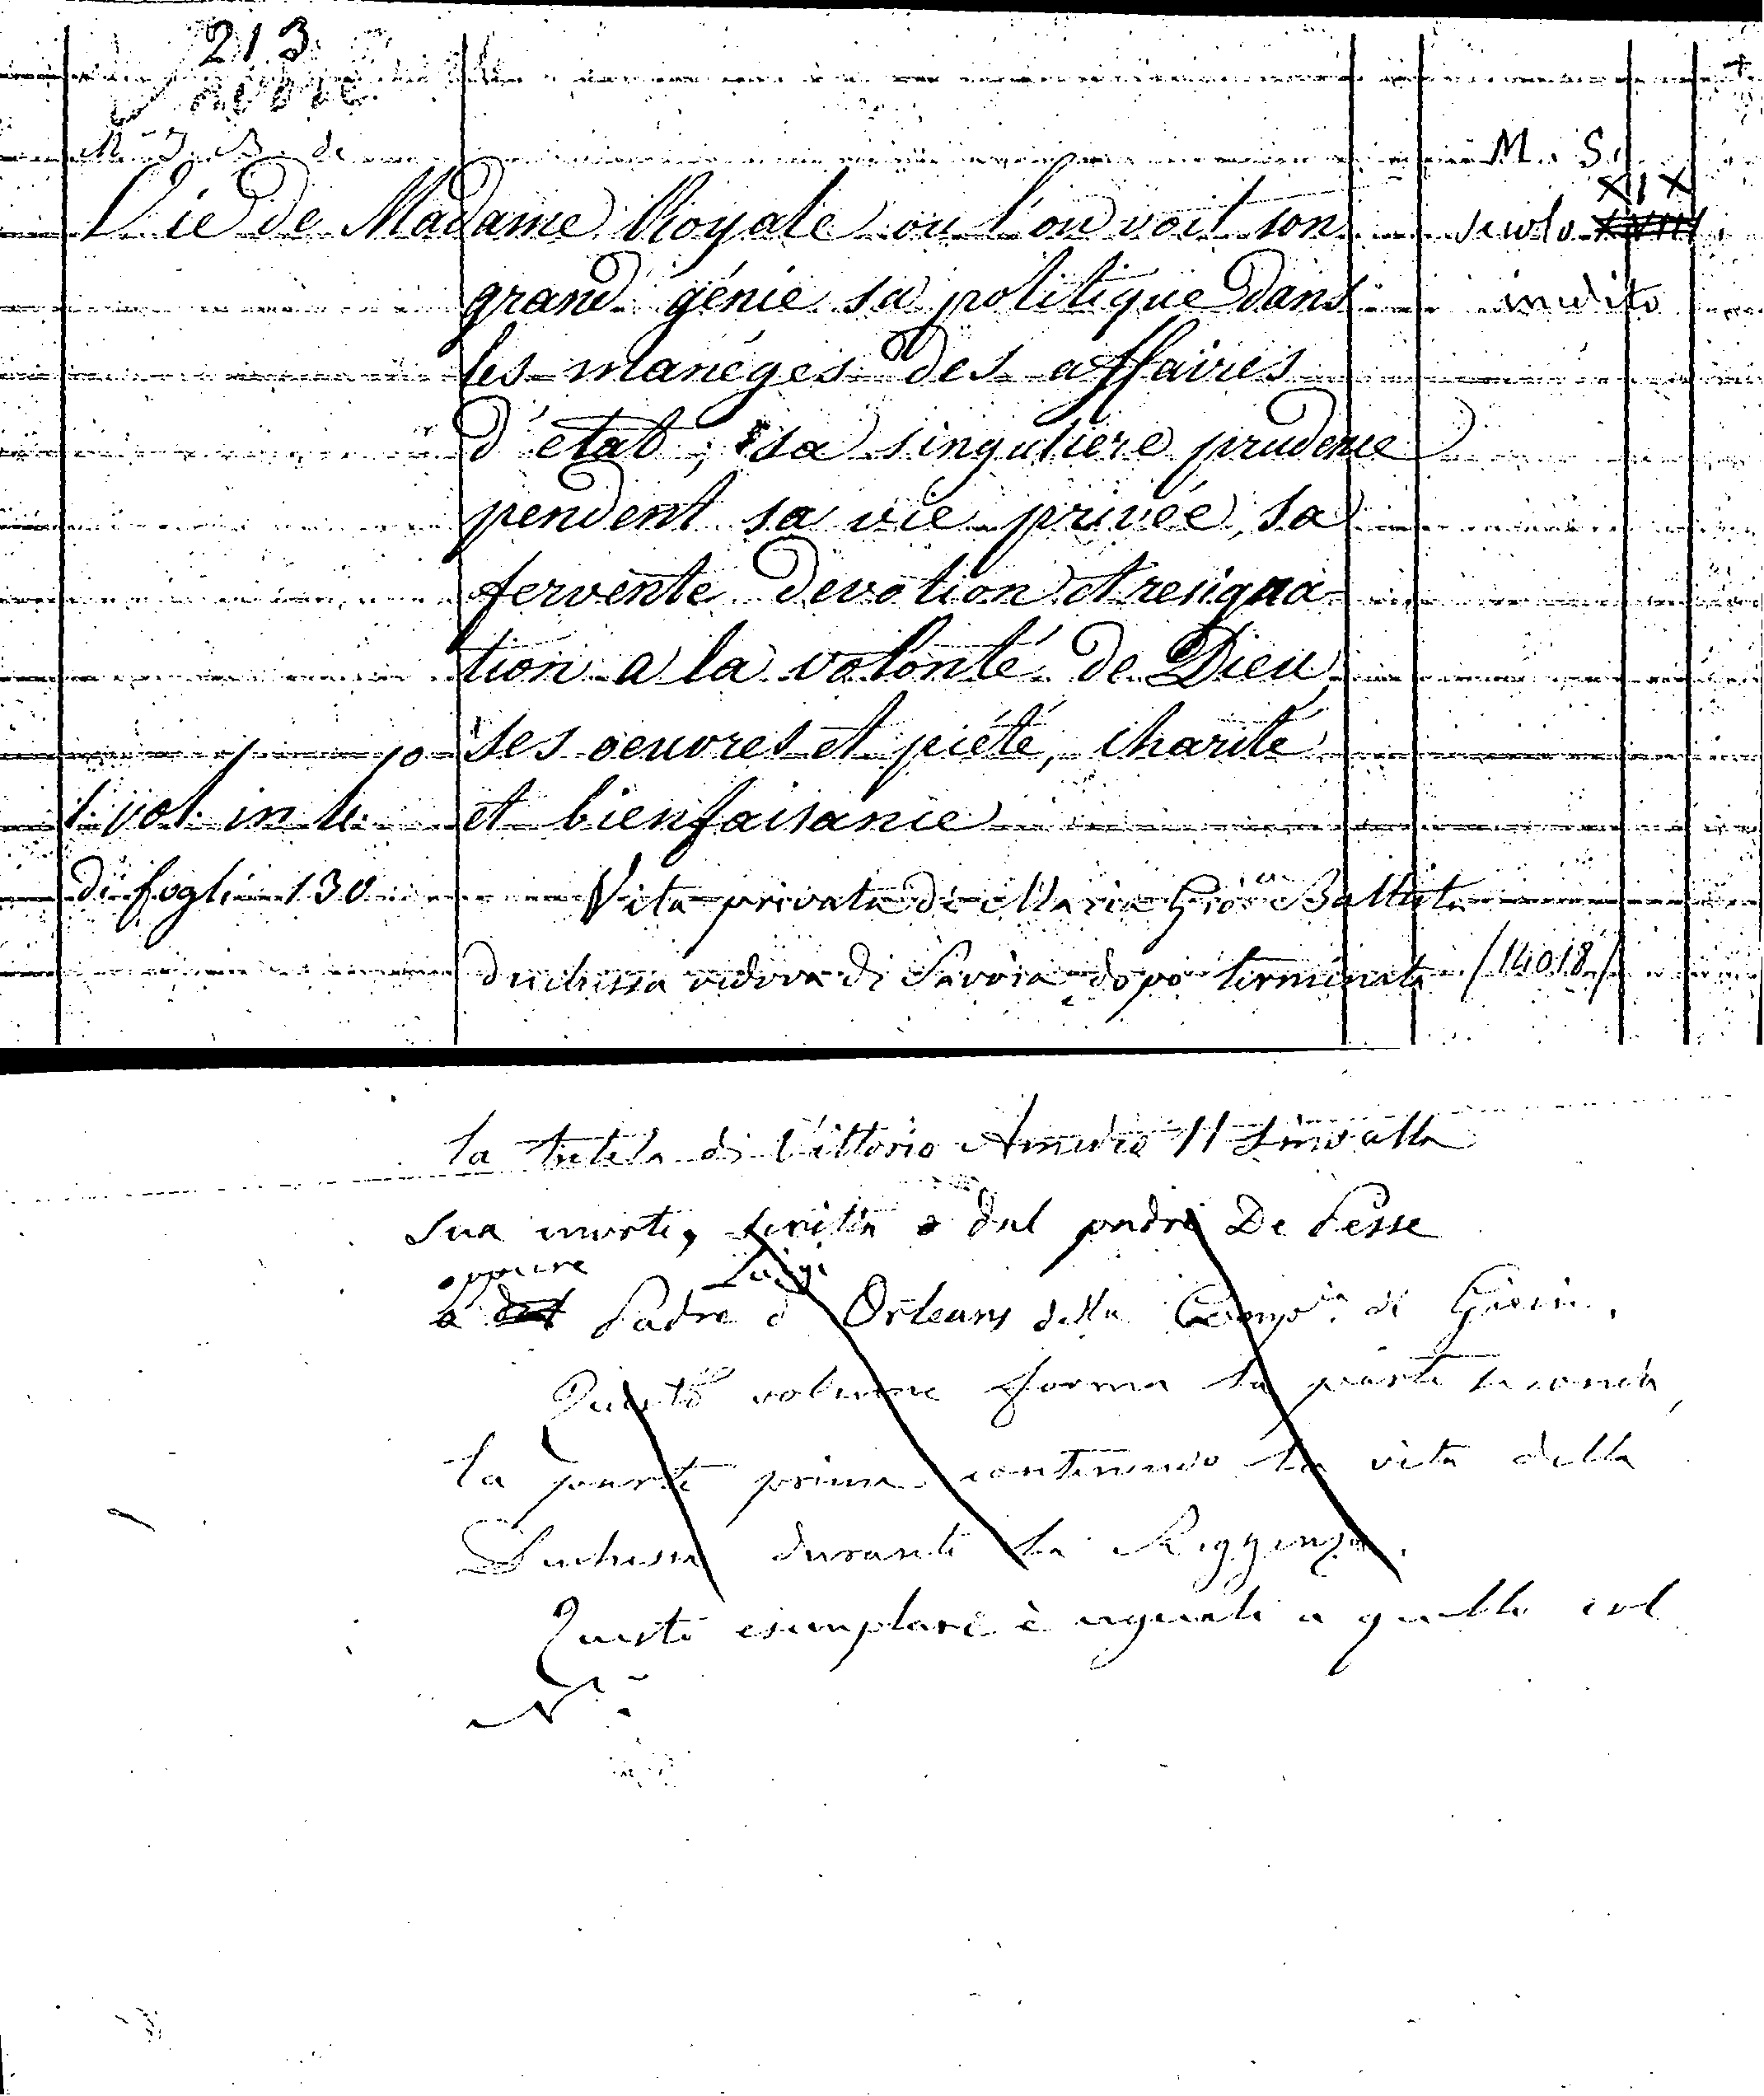 213
Savoie
M. J. B. de
M. S.
Vie de Madame Royale ou l'on voit son
secolo XIX
grand génie sa politique dans
inedito
les manéges des affaires
d'état; sa singuliere prudence
pendent sa vie privée, sa
fervente devotion et resigna
tion a la volonté de Dieu
ses oeuvres et pieté, charité
et bienfaisance
1. vol. in 4.
di fogli 130
Vita privata di Maria Gioa Battista
duchessa vedova di Savoia dopo terminata
(14018)
la tutela di Vittorio Amedeo II sino alla
sua morte, scritta o dal padre De Lesse
oppure Luigi
o dal Padre d' Orleans della Compia di Gesù.
Questo volume forma la parte seconda,
la parte prima contenendo la vita della
Duchessa durante la Reggenza.
Questo esemplare è uguale a quello col
No